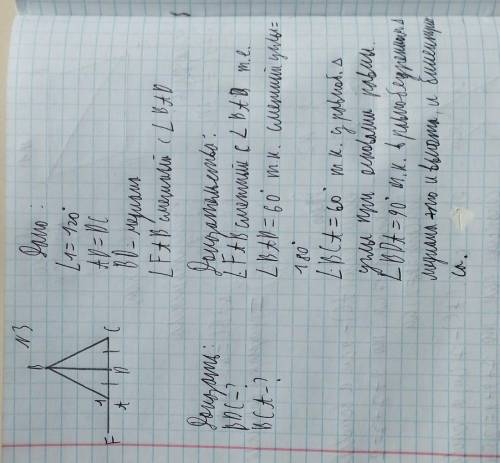 N3
B
F 1 A D C
Дано:
∠1=120°
AD=DC
BD - медиана
∠FAB смежный с ∠BAD
Доказать:
BDC-?
BCA-?
Доказательство:
∠FAB смежный с ∠BAD, т.е.
∠BAD=60° т.к. смежный углы=
180°
∠BCA=60° т.к. у равноб. Δ
углы при основании равны.
∠BDA=90° т.к. в равнобедренном Δ
медиана это и высота и биссектри
са.